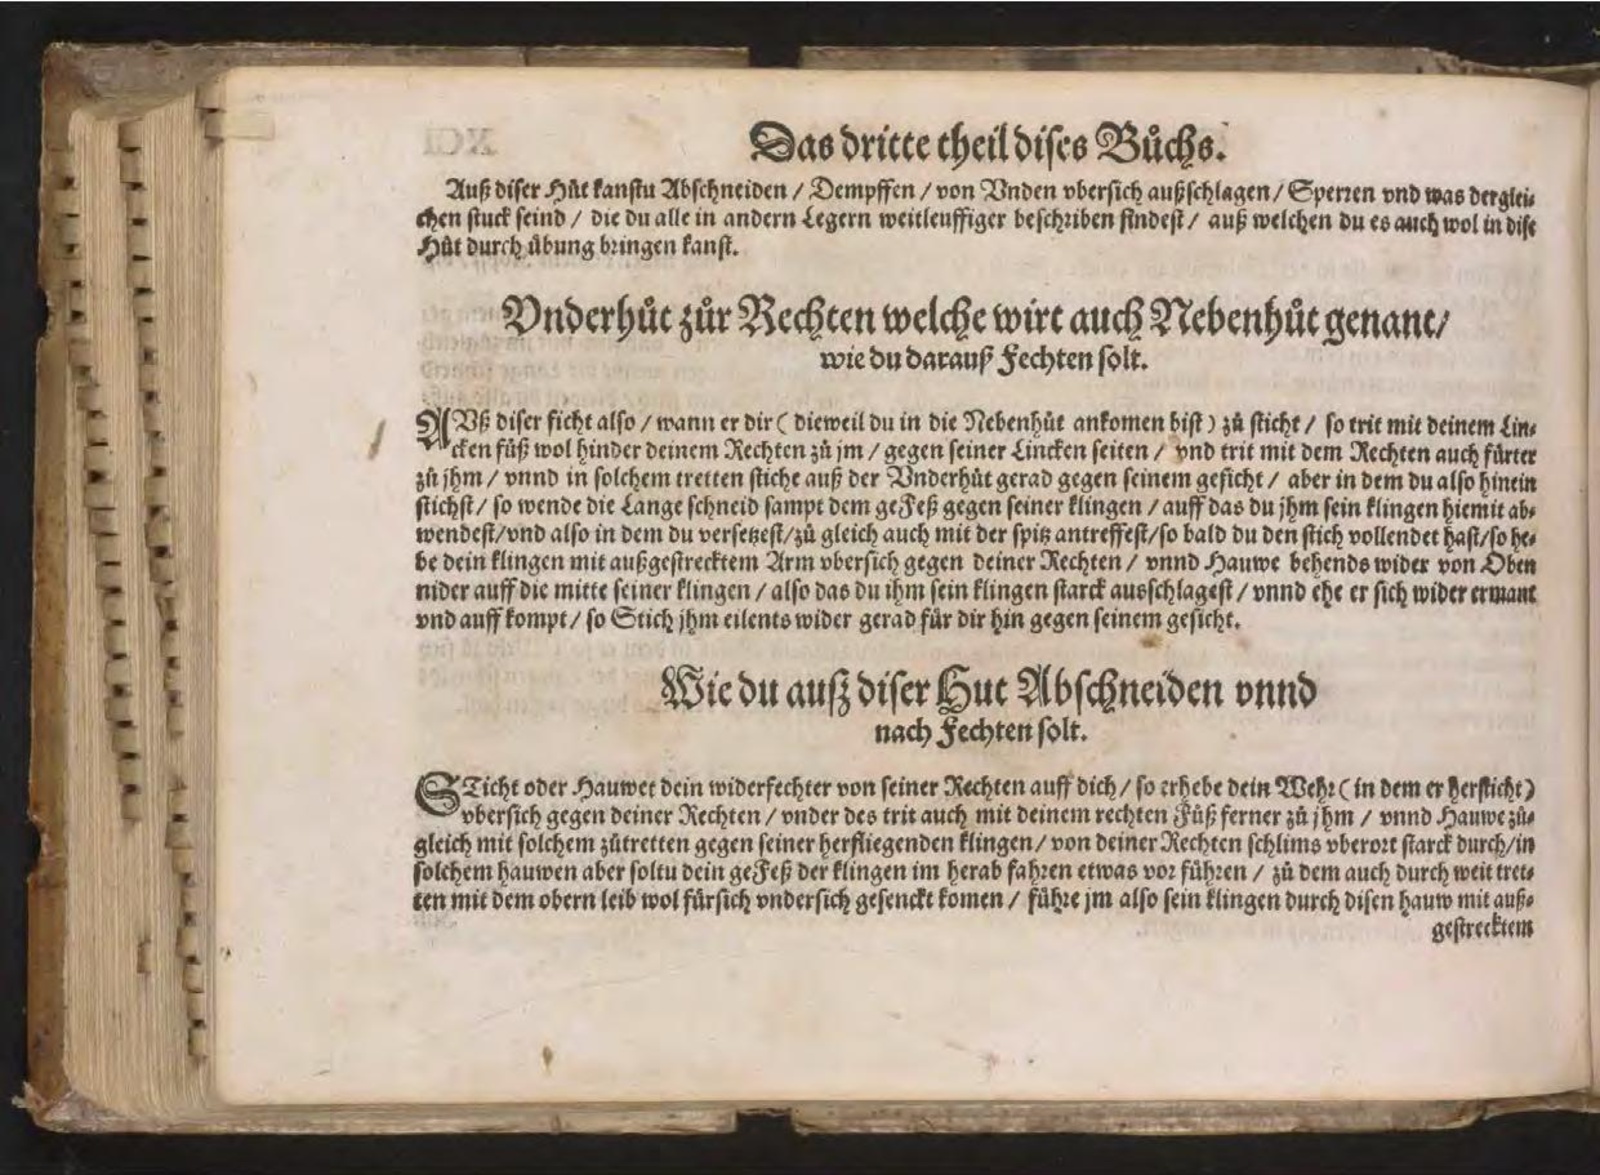 Das dritte theil dises Bůchs.
Auß diser Hůt kanstu Abschneiden / Dempffen / von Vnden vbersich außschlagen / Sperren vnd was derglei-
chen stuck seind / die du alle in andern Legern weitleuffiger beschriben findest / auß welchen du es auch wol in dise
Hůt durch übung bringen kanst.
Vnderhůt zůr Rechten welche wirt auch Nebenhůt genant/
wie du darauß Fechten solt.
AVß diser ficht also / wann er dir ( dieweil du in die Nebenhůt ankomen bist ) zů sticht / so trit mit deinem Lin-
cken fůß wol hinder deinem Rechten zů jm / gegen seiner Lincken seiten / vnd trit mit dem Rechten auch fürter
zů jhm / vnnd in solchem tretten stiche auß der Vnderhůt gerad gegen seinem gesicht / aber in dem du also hinein
stichst / so wende die Lange schneid sampt dem gefeß gegen seiner klingen / auff das du jhm sein klingen hiemit ab-
wendest/vnd also in dem du versetzest/zů gleich auch mit der spitz antreffest/so bald du den stich vollendet hast/so he-
be dein klingen mit außgestrecktem Arm vbersich gegen deiner Rechten / vnnd Hauwe behends wider von Oben
nider auff die mitte seiner klingen / also das du ihm sein klingen starck ausschlagest / vnnd ehe er sich wider ermant
vnd auff kompt / so Stich jhm eilents wider gerad für dir hin gegen seinem gesicht.
Wie du auß diser Hut Abschneiden vnnd
nach Fechten solt.
STicht oder Hauwet dein widerfechter von seiner Rechten auff dich / so erhebe dein Wehr ( in dem er hersticht )
vbersich gegen deiner Rechten / vnder des trit auch mit deinem rechten Fůß ferner zů jhm / vnnd Hauwe zů-
gleich mit solchem zůtretten gegen seiner herfliegenden klingen / von deiner Rechten schlims vberort starck durch/in
solchem hauwen aber soltu dein gefeß der klingen im herab fahren etwas vor führen / zů dem auch durch weit tret-
ten mit dem obern leib wol fürsich vndersich gesenckt komen / führe jm also sein klingen durch disen hauw mit auß-
gestrecktem